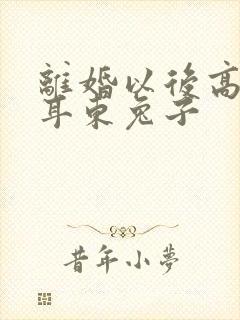 離婚以後高
耳東兔子
昔年小夢